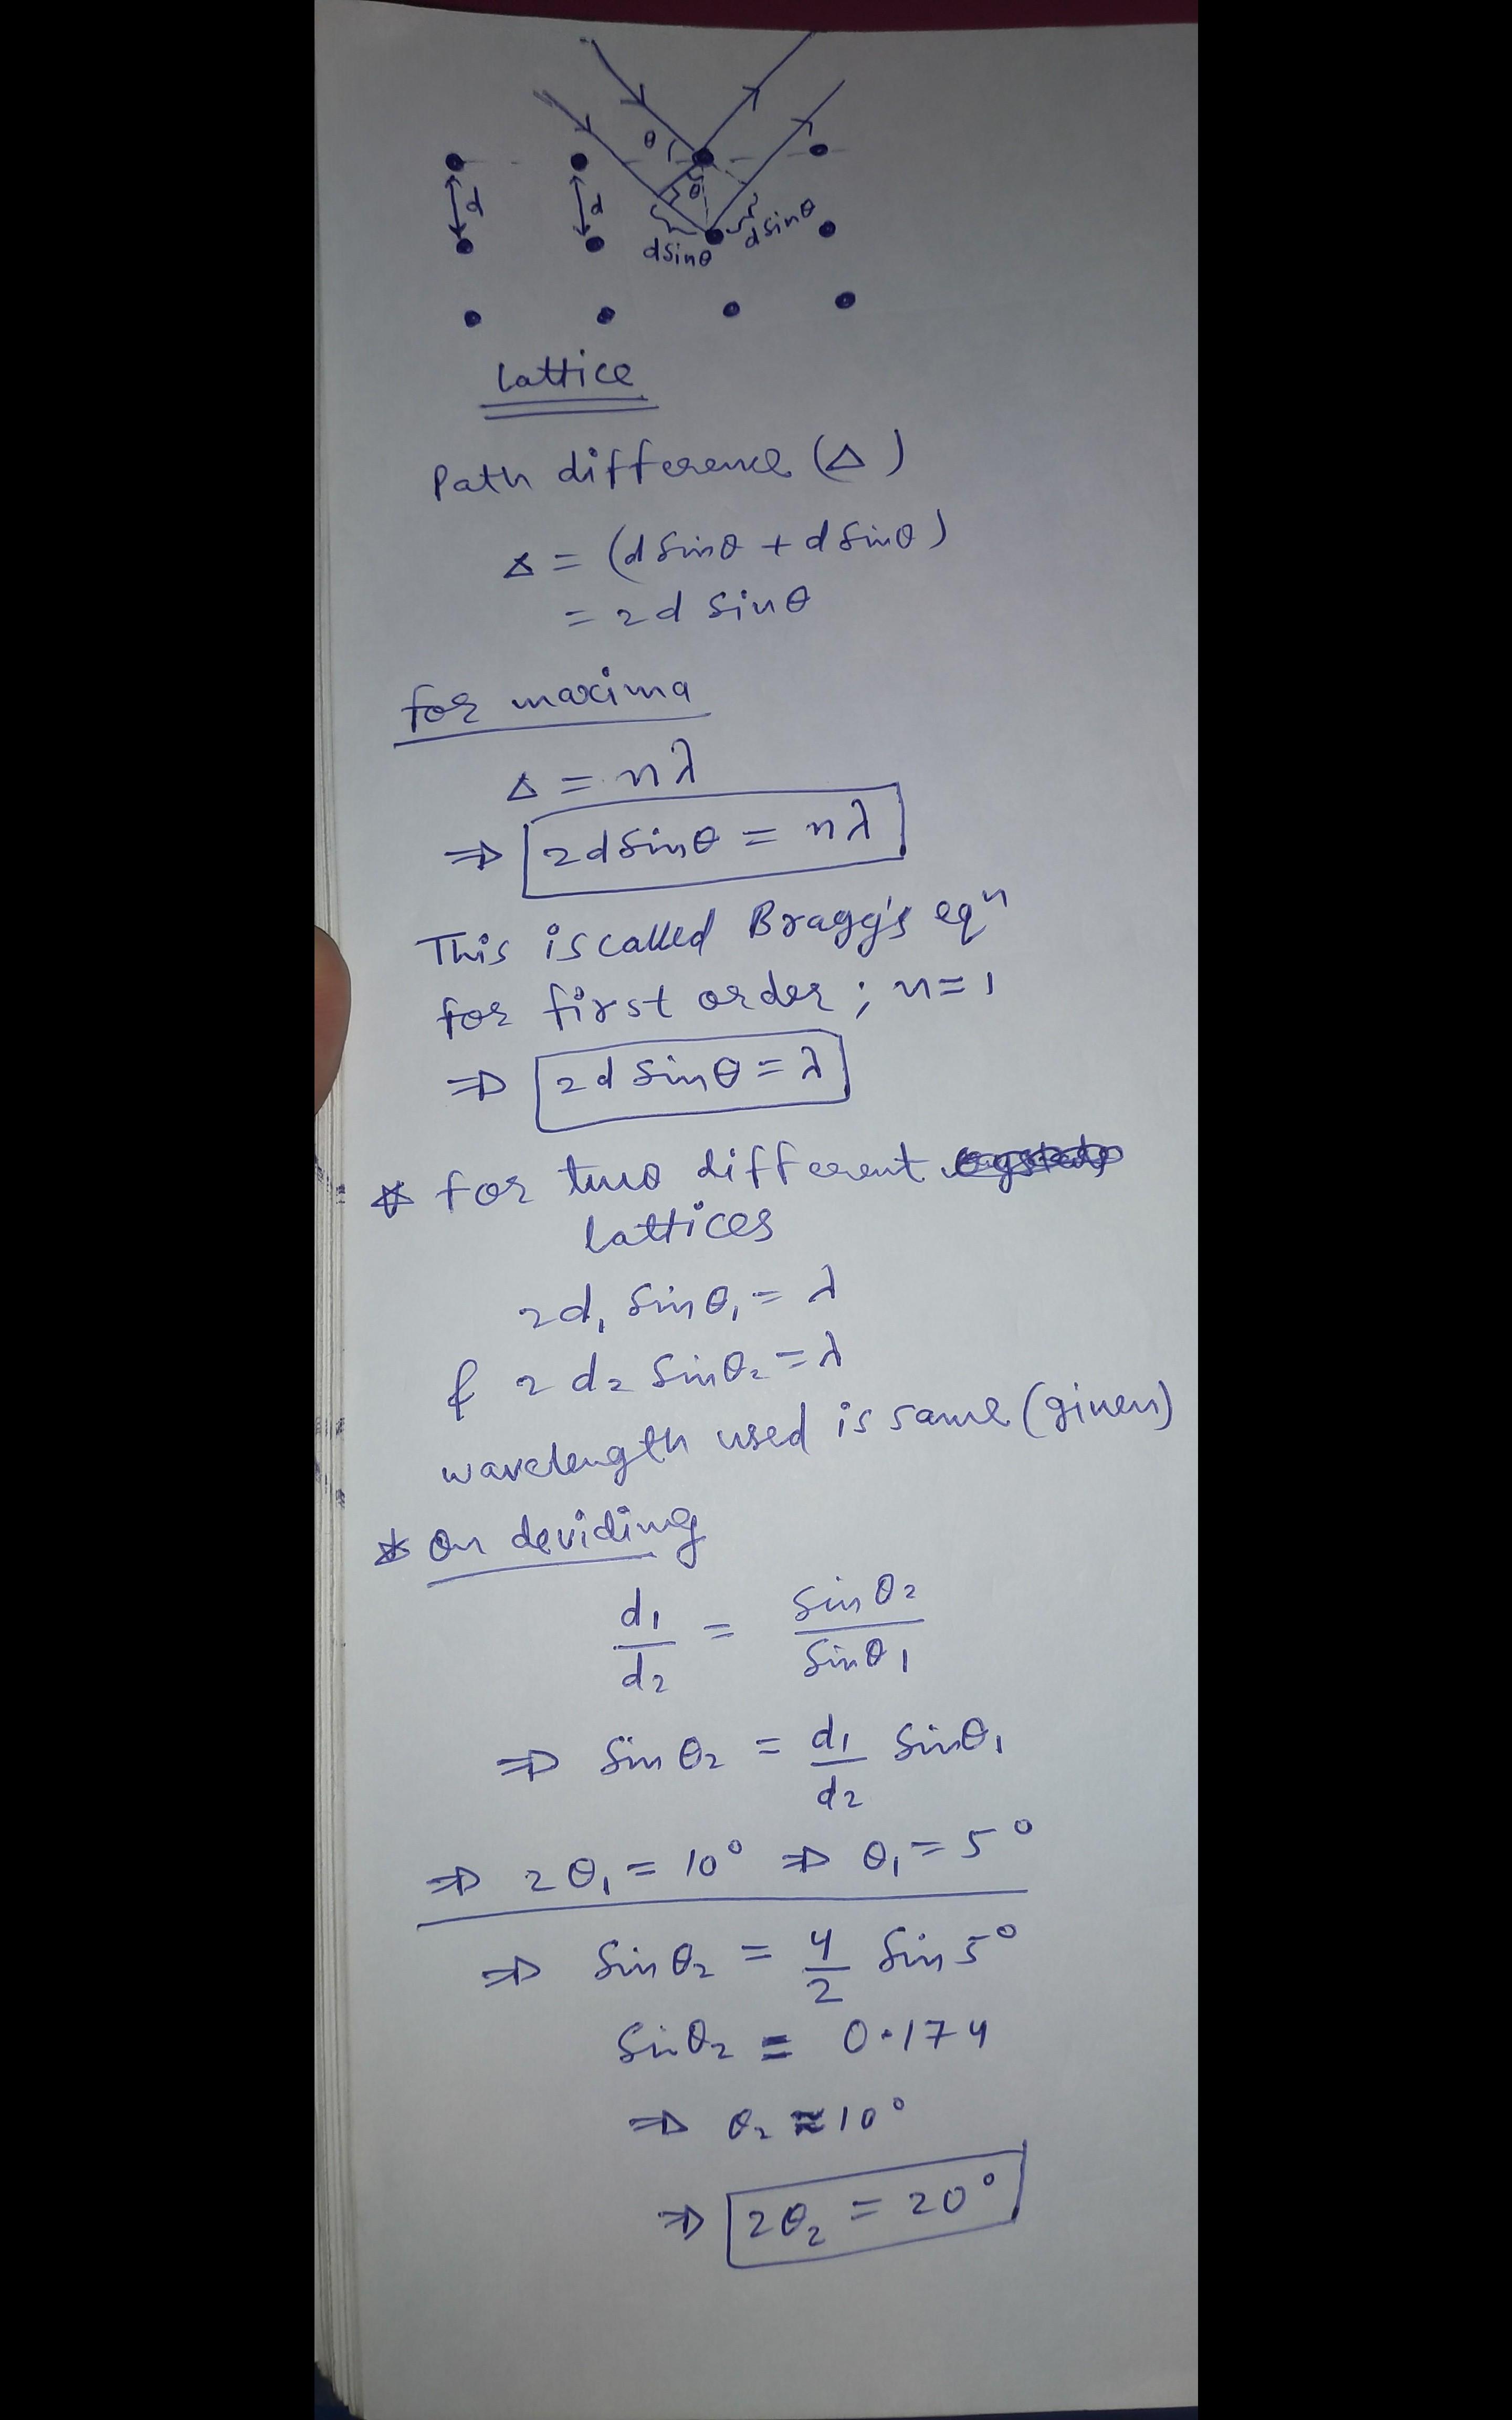 θ
d
d
θ
dsinθ
dsinθ
Lattice
Path difference (Δ)
Δ = (d sinθ + d sinθ)
= 2d sinθ
for maxima
Δ = nλ
⇒ 2d sinθ = nλ
This is called Bragg's eqⁿ
for first order ; n = 1
⇒ 2d sinθ = λ
* for two different
lattices
2d₁ sinθ₁ = λ
& 2 d₂ sinθ₂ = λ
wavelength used is same (given)
* On deviding
d₁/d₂ = sinθ₂/sinθ₁
⇒ sinθ₂ = d₁/d₂ sinθ₁
⇒ 2θ₁ = 10° ⇒ θ₁ = 5°
⇒ sinθ₂ = 4/2 sin 5°
sinθ₂ = 0.174
⇒ θ₂ ≈ 10°
⇒ 2θ₂ = 20°